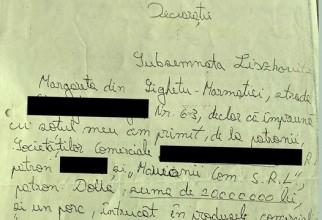 Declarații
Subsemnata Liszhovitz
Margareta din Sighetu-Marmației, strada
Nr. 63, declar că împreună
cu soțul meu am primit, de la patronii,
Societăților Comerciale R.
patron și "Com S.R.L",
patron suma de 20000000 lei,
și un porc, întrucât în produsele